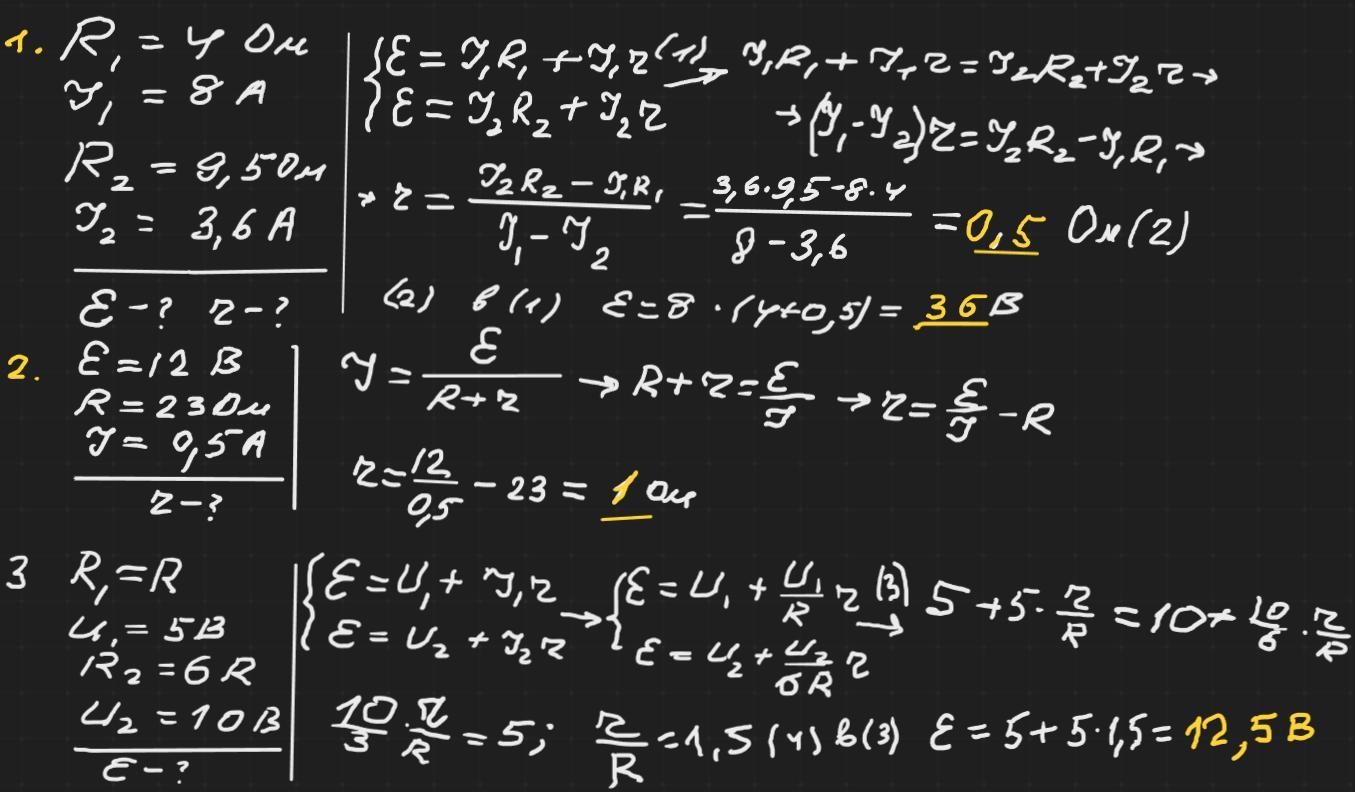 1. R₁ = 4 Ом
I₁ = 8 А
R₂ = 9,5 Ом
I₂ = 3,6 А
ℰ - ? r - ?
{ℰ = I₁R₁ + I₁r (1) → I₁R₁ + I₁r = I₂R₂ + I₂r →
{ℰ = I₂R₂ + I₂r → (I₁ - I₂)r = I₂R₂ - I₁R₁ →
→ r = (I₂R₂ - I₁R₁)/(I₁ - I₂) = (3,6·9,5 - 8·4)/(8 - 3,6) = 0,5 Ом (2)
(2) в (1) ℰ = 8 · (4+0,5) = 36 В
2. ℰ = 12 В
R = 23 Ом
I = 0,5 А
r - ?
I = ℰ/(R + r) → R + r = ℰ/I → r = ℰ/I - R
r = 12/0,5 - 23 = 1 Ом
3 R₁ = R
U₁ = 5 В
R₂ = 6 R
U₂ = 10 В
ℰ - ?
{ℰ = U₁ + I₁r → {ℰ = U₁ + U₁/R r (3) → 5 + 5 · r/R = 10 + 10/6 · r/R
{ℰ = U₂ + I₂r {ℰ = U₂ + U₂/6R r
10/3 · r/R = 5; r/R = 1,5 (4) в (3) ℰ = 5 + 5·1,5 = 12,5 В